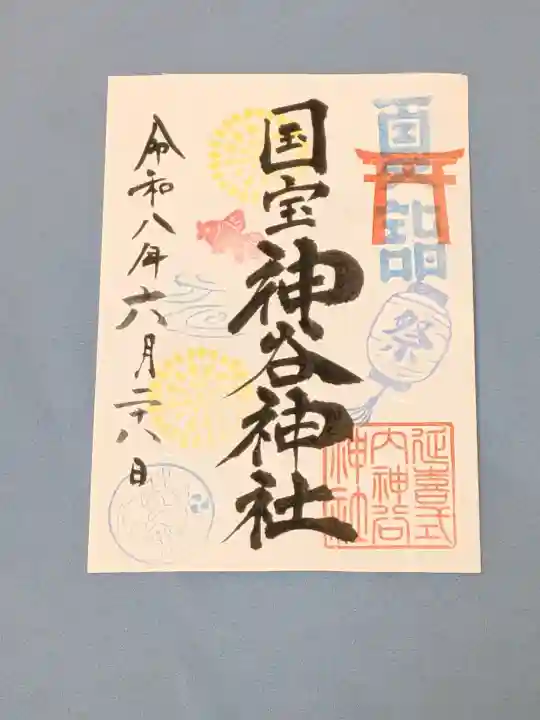 百詣
祭
国宝神谷神社
延喜式
内神谷
神社
令和八年六月二十八日